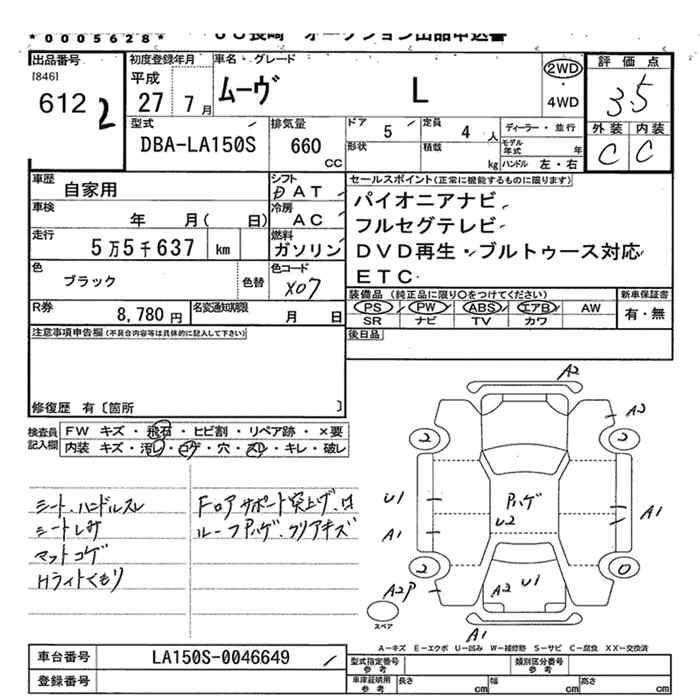 *0005628*
JU長崎 オークション出品申込書
出品番号
[846]
612 2
初度登録年月
平成
27 7月
車名・グレード
ムーヴ L
2WD
・
4WD
評価点
3.5
外装 内装
C C
型式
DBA-LA150S
排気量
660
CC
ドア 5
定員 4人
形状
積載 kg
ディーラー・並行
モデル年式 年
ハンドル 左・右
車歴 自家用
シフト
AT
車検 年 月( 日)
冷房
AC
走行 5万5千637 km
燃料
ガソリン
色 ブラック 色替
色コード
X07
R券 8,780円
名変通知期限 月 日
セールスポイント(正常に機能するものに限ります)
パイオニアナビ
フルセグテレビ
DVD再生・ブルトゥース対応
ETC
装備品 (純正品に限り○をつけてください)
PS PW ABS エアB AW
SR ナビ TV カワ
新車保証書
有・無
後日品
注意事項申告欄(不具合内容等は具体的に記入して下さい)
修復歴 有〔箇所 〕
検査員記入欄
FW キズ・飛石・ヒビ割・リペア跡・×要
内装 キズ・汚レ・コゲ・穴・スレ・キレ・破レ
シート、ハンドルスレ
シートしみ
マットコゲ
Hライトくもり
Fロアサポート突上げ、凹
ルーフハゲ、クリアキズ
A2
A2
2 2
U1
ハゲ
U2
A1
A1
2 0
A2P
A2 U1
スペア
A1
A-キズ E-エクボ U-凹み W-補修跡 S-サビ C-腐食 XX-交換済
車台番号 LA150S-0046649
登録番号
型式指定番号
参考
類別区分番号
参考
車庫証明用
参考
長さ cm
幅 cm
高さ cm